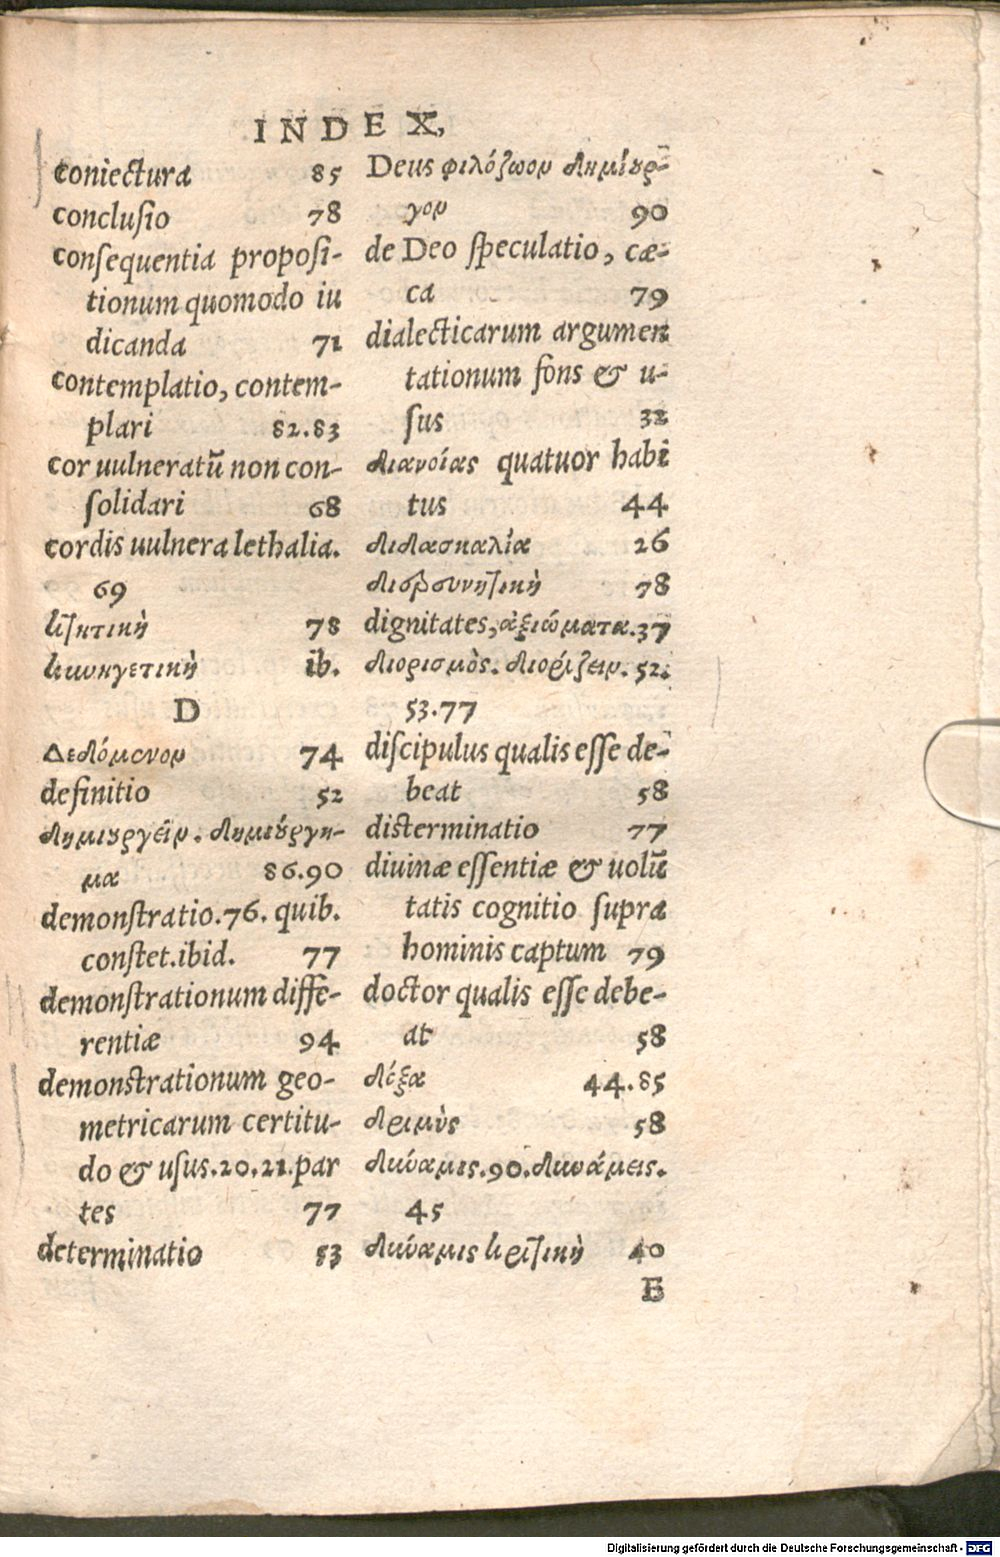 INDEX,
coniectura 85
conclusio 78
consequentia proposi-
tionum quomodo iu
dicanda 71
contemplatio, contem-
plari 82.83
cor uulneratũ non con-
solidari 68
cordis uulnera lethalia.
69
ζητητικὴ 78
κυνηγετικὴ ib.
D
Δεδόμενον 74
definitio 52
δημιουργεῖν. δημιούργη-
μα 86.90
demonstratio.76. quib.
constet.ibid. 77
demonstrationum diffe-
rentiæ 94
demonstrationum geo-
metricarum certitu-
do & usus.20.21.par
tes 77
determinatio 53
Deus φιλόζωον δημίουρ-
γον 90
de Deo speculatio, cæ-
ca 79
dialecticarum argumen
tationum fons & u-
sus 32
διανοίας quatuor habi
tus 44
διδασκαλία 26
78
dignitates, ἀξιώματα.37
διορισμὸς. διορίζειν. 52.
53.77
discipulus qualis esse de-
beat 58
disterminatio 77
diuinæ essentiæ & uolũ
tatis cognitio supra
hominis captum 79
doctor qualis esse debe-
at 58
δόξα 44.85
δριμὺς 58
δύναμις.90.δυνάμεις.
45
δύναμις κριτικὴ 40
E
Digitalisierung gefördert durch die Deutsche Forschungsgemeinschaft - DFG